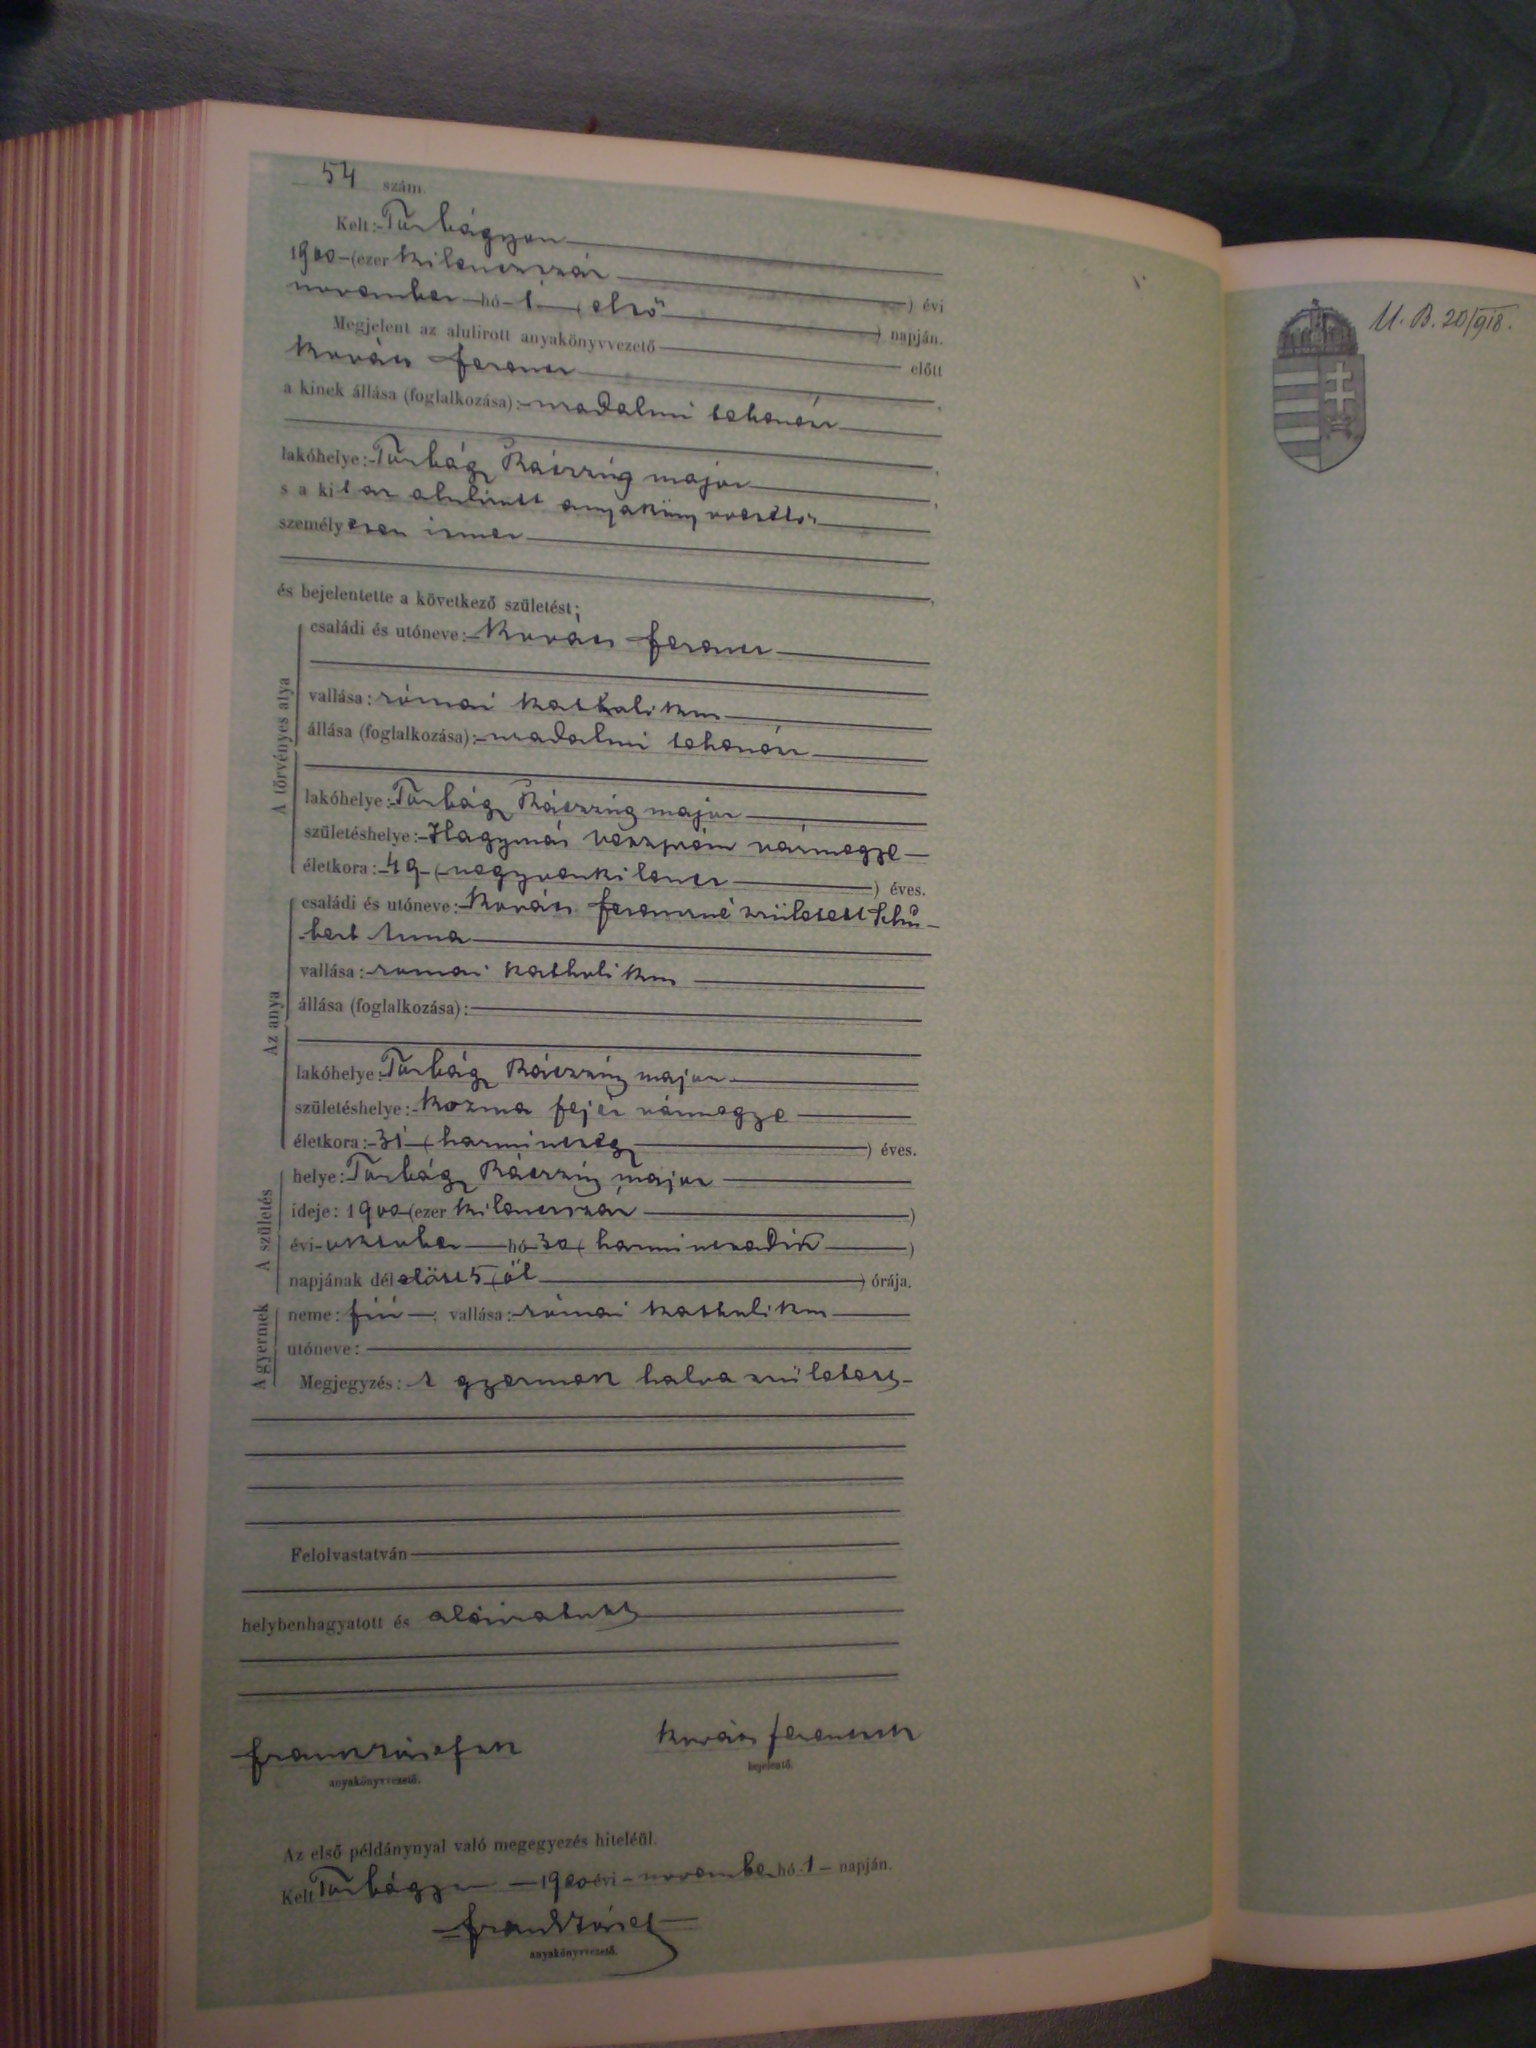 54 szám.
Kelt: Torbágyon
1900 (ezer kilenczszáz ) évi
november hó 1 ( első ) napján.
Megjelent az alulirott anyakönyvvezető előtt
Kovács Ferencz ,
a kinek állása (foglalkozása): uradalmi tehenész
,
lakóhelye: Torbágy Ráczzúg major ,
s a kit az alulirott anyakönyvvezető
személyesen ismer
,
és bejelentette a következő születést:
A törvényes atya
családi és utóneve: Kovács Ferencz
vallása: római katholikus
állása (foglalkozása): uradalmi tehenész
lakóhelye: Torbágy Ráczzúg major
születéshelye: Hagymás Veszprém vármegye
életkora: 49 ( negyvenkilencz ) éves.
Az anya
családi és utóneve: Kovács Ferenczné született Schu-
bert Anna
vallása: romai katholikus
állása (foglalkozása):
lakóhelye: Torbágy Ráczzúg major
születéshelye: Kozma Fejér vármegye
életkora: 31 ( harminczegy ) éves.
A születés
helye: Torbágy Ráczzúg major
ideje: 1900 (ezer kilenczszáz )
évi október hó 30 ( harminczadik )
napjának dél előtt 5 ( öt ) órája.
A gyermek
neme: fiú ; vallása: római katholikus
utóneve:
Megjegyzés: A gyermek halva született
Felolvastatván
helybenhagyatott és aláiratott
Frank József
anyakönyvvezető.
Kovács Ferencz
bejelentő.
Az első példánynyal való megegyezés hiteléül.
Kelt Torbágyon 1900 évi november hó 1 napján.
Frank József
anyakönyvvezető.
U. B. 20/918.